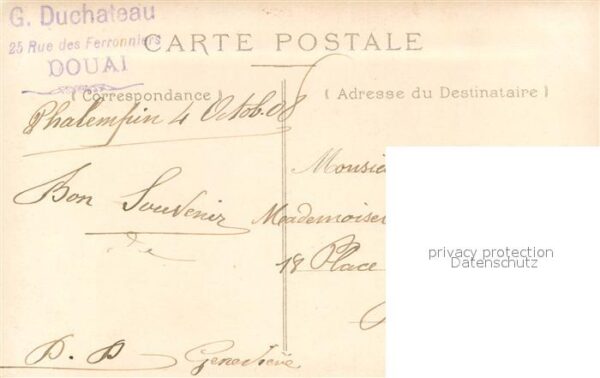 G. Duchateau
25 Rue des Ferronniers
DOUAI
CARTE POSTALE
( Correspondance )
( Adresse du Destinataire )
Phalempin 4 Octob. 08
Bon Souvenir
de
Geneviève
Monsie
Mademoisel
18 Place
privacy protection
Datenschutz